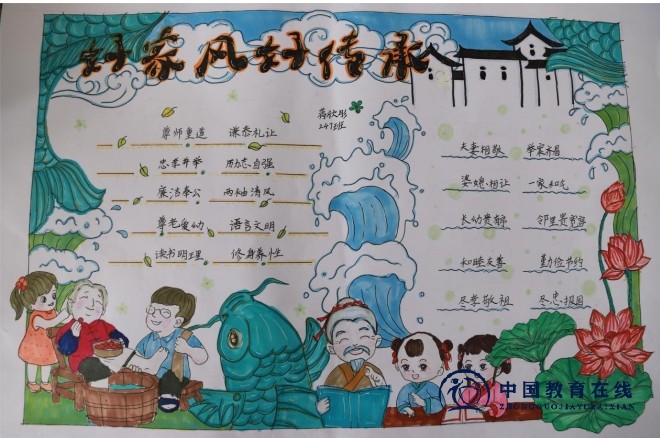 好家风好传承
蒋欣彤
247班
尊师重道 谦恭礼让
忠孝并举 励志自强
廉洁奉公 两袖清风
尊老爱幼 语言文明
读书明理 修身养性
夫妻相敬 举案齐眉
婆媳相让 一家和气
长幼贵 邻里贵
和睦友善 勤俭节约
尽孝敬祖 尽忠报国
中国教育在线
ZHONGGUOJIAOYUZAIXIAN